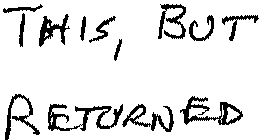 THIS, BUT
RETURNED